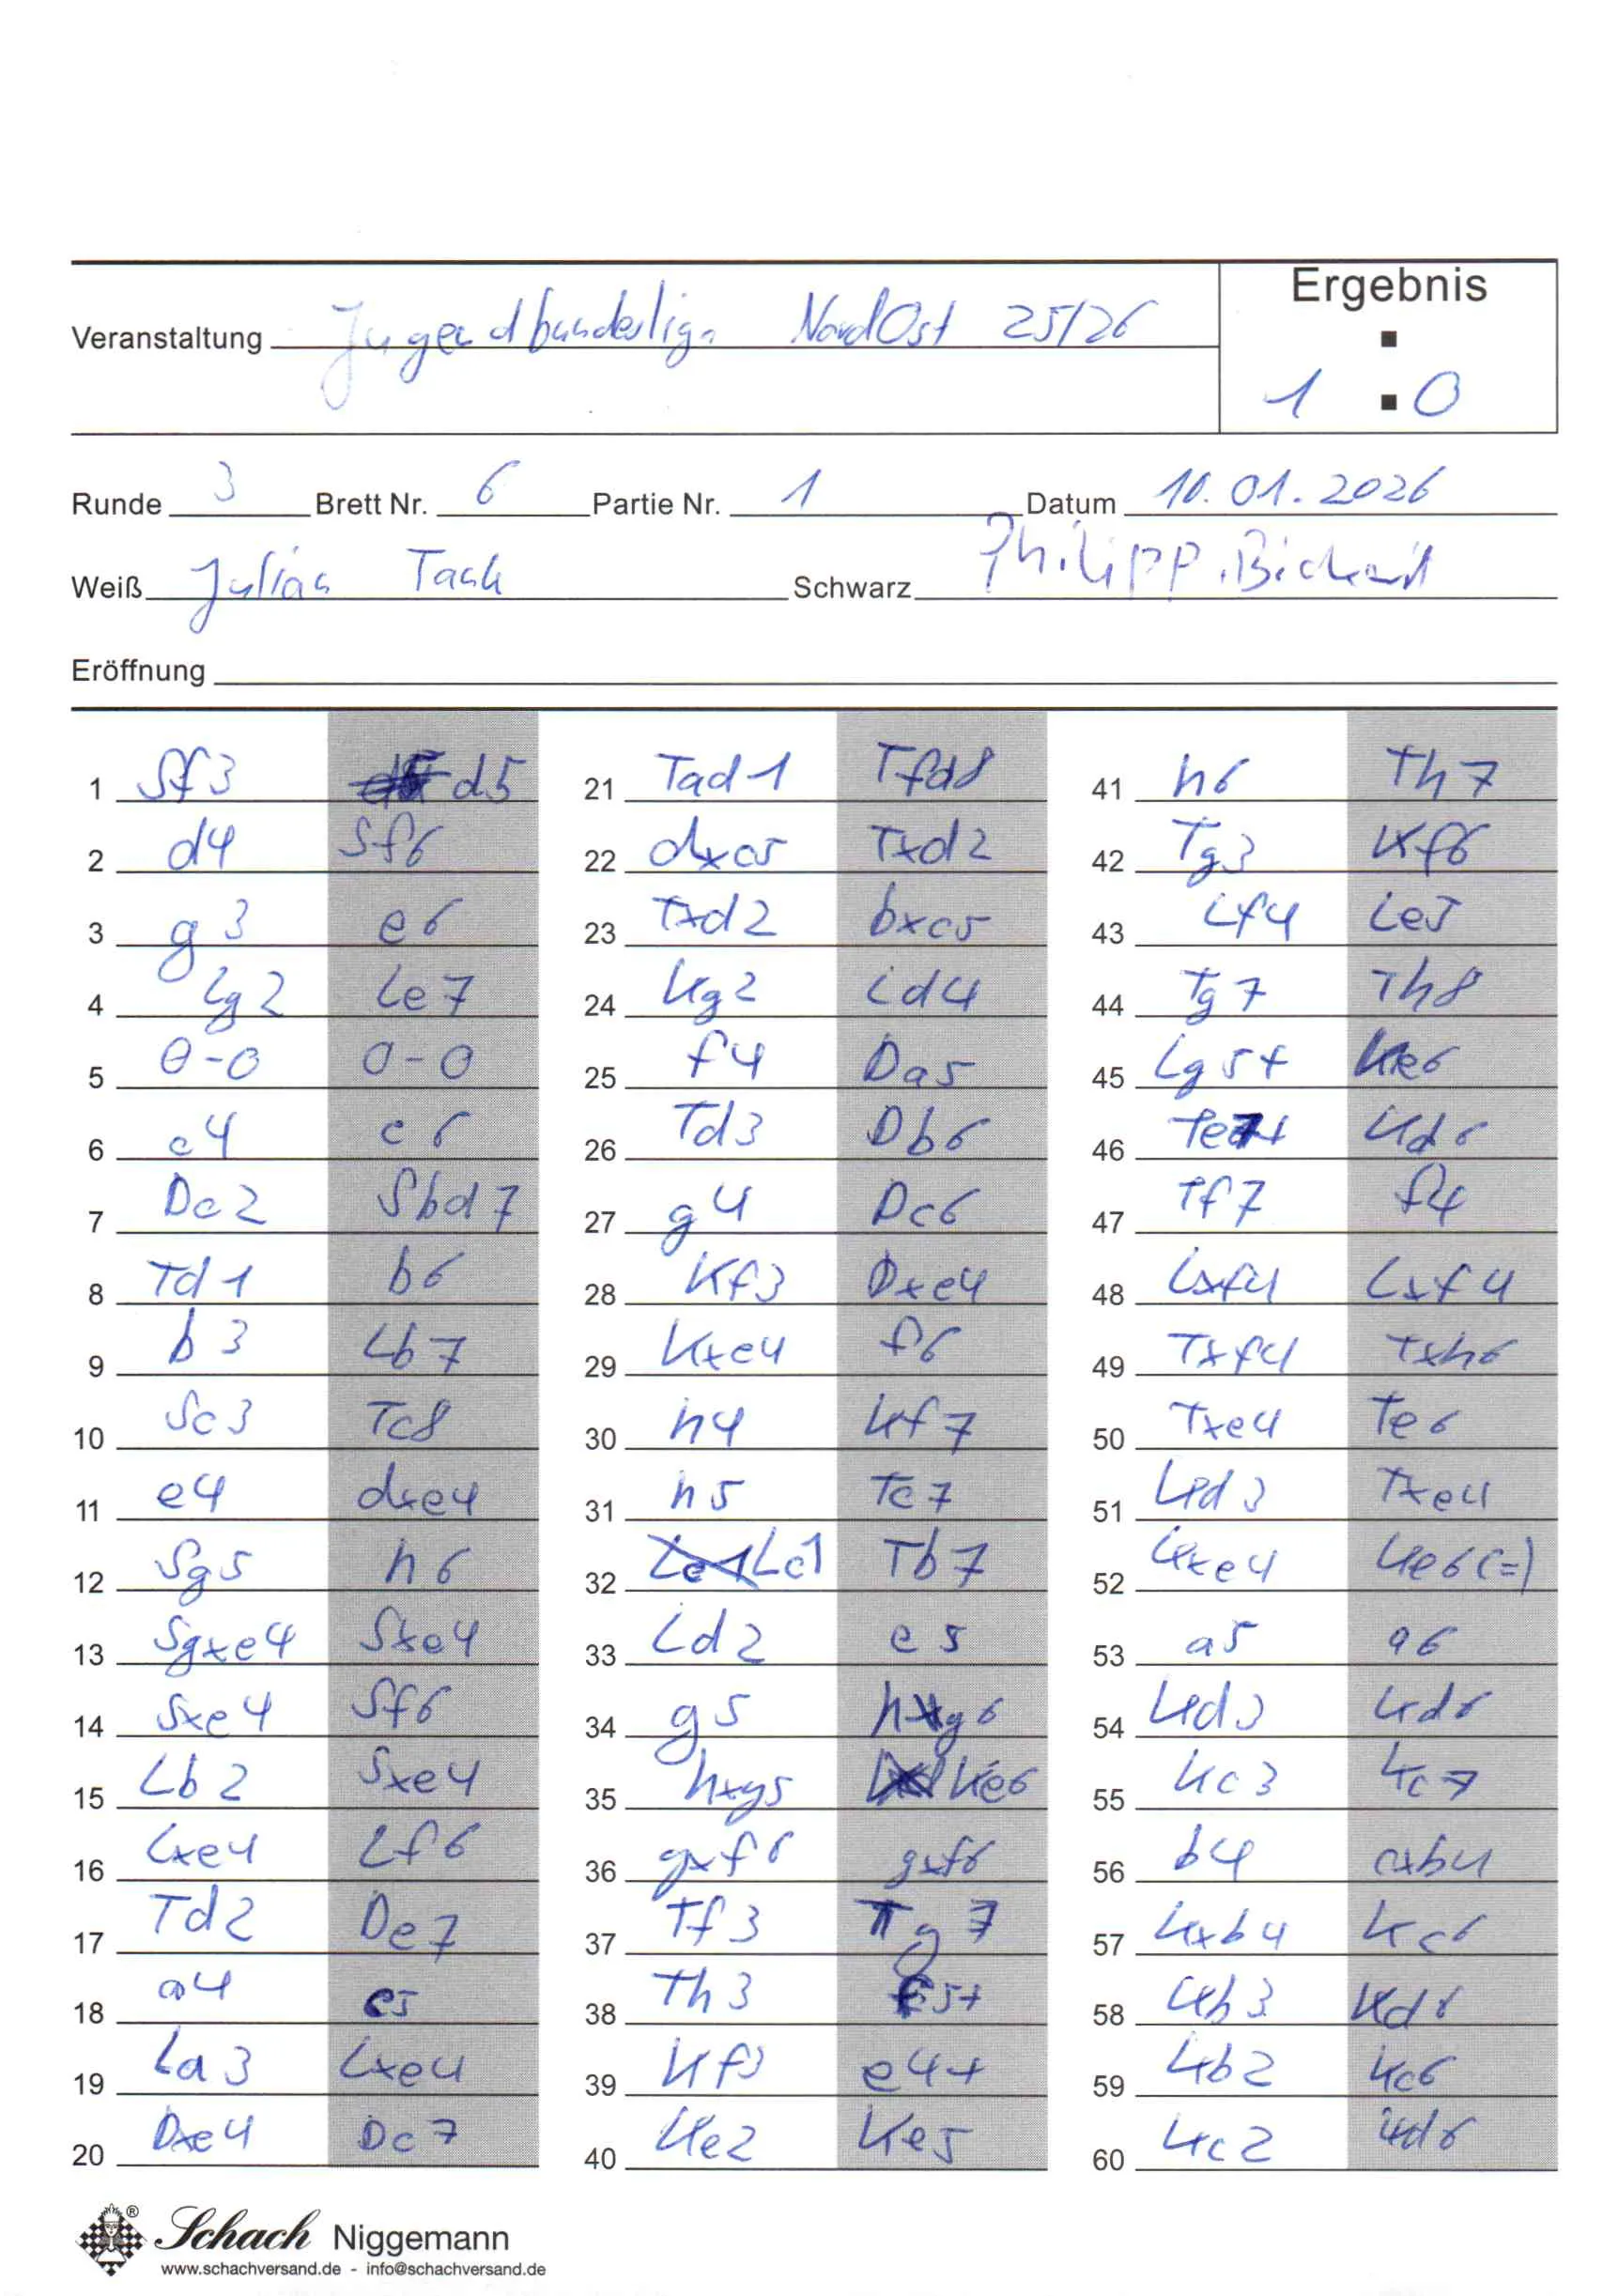 Ergebnis
Veranstaltung Jugendbundesliga NordOst 25/26
1 : 0
Runde 3 Brett Nr. 6 Partie Nr. 1 Datum 10.01.2026
Weiß Julian Tack Schwarz Philipp
Eröffnung
1 Sf3 d5
2 d4 Sf6
3 g3 e6
4 Lg2 Le7
5 0-0 0-0
6 c4 c6
7 Dc2 Sbd7
8 Td1 b6
9 b3 Lb7
10 Sc3 Tc8
11 e4 dxe4
12 Sg5 h6
13 Sgxe4 Sxe4
14 Sxe4 Sf6
15 Lb2 Sxe4
16 Lxe4 Lf6
17 Td2 De7
18 a4 c5
19 La3 Lxe4
20 Dxe4 Dc7
21 Tad1 Tfd8
22 dxc5 Txd2
23 Txd2 bxc5
24 Kg2 Ld4
25 f4 Da5
26 Td3 Db6
27 g4 Dc6
28 Kf3 Dxe4
29 Kxe4 f6
30 h4 Kf7
31 h5 Tc7
32 Lc1 Tb7
33 Ld2 e5
34 g5 hxg6
35 hxg5 Ke6
36 gxf6 gxf6
37 Tf3 Tg7
38 Th3 f5+
39 Kf3 e4+
40 Ke2 Ke5
41 h6 Th7
42 Tg3 Kf6
43 Lf4 Le5
44 Tg7 Th8
45 Lg5+ Ke6
46 Te7+ Kd6
47 Tf7 f4
48 Lxf4 Lxf4
49 Txf4 Txh6
50 Txe4 Te6
51 Kd3 Txe4
52 Kxe4 Ke6(=)
53 a5 a6
54 Kd3 Kd6
55 Kc3 Kc7
56 b4 cxb4
57 Kxb4 Kc6
58 Kb3 Kd6
59 Kb2 Kc6
60 Kc2 Kd6
Schach Niggemann
www.schachversand.de - info@schachversand.de